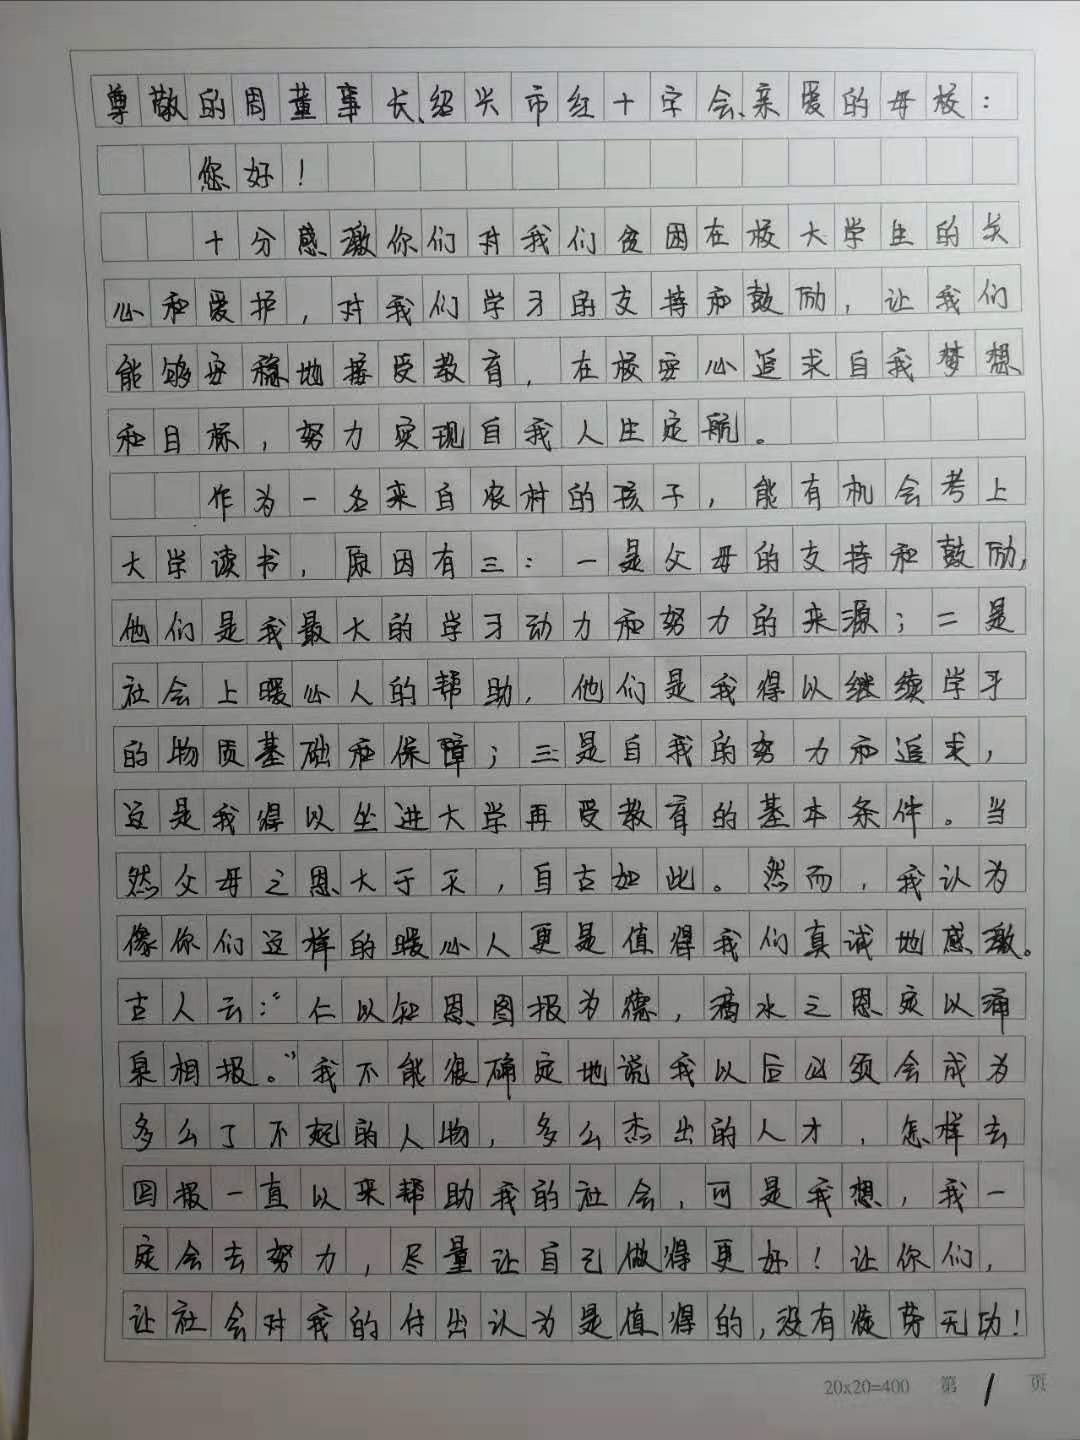 尊敬的周董事长、绍兴市红十字会、亲爱的母校：
您好！
十分感激你们对我们贫困在校大学生的关
心和爱护，对我们学习的支持和鼓励，让我们
能够安稳地接受教育，在校安心追求自我梦想
和目标，努力实现自我人生定航。
作为一名来自农村的孩子，能有机会考上
大学读书，原因有三：一是父母的支持和鼓励，
他们是我最大的学习动力和努力的来源；二是
社会上暖心人的帮助，他们是我得以继续学习
的物质基础和保障；三是自我的努力和追求，
这是我得以坐进大学再受教育的基本条件。当
然父母之恩大于天，自古如此。然而，我认为
像你们这样的暖心人更是值得我们真诚地感激。
古人云：“仁以知恩图报为德，滴水之恩定以涌
泉相报。”我不能很确定地说我以后必须会成为
多么了不起的人物，多么杰出的人才，怎样去
回报一直以来帮助我的社会，可是我想，我一
定会去努力，尽量让自己做得更好！让你们，
让社会对我的付出认为是值得的，没有徒劳无功！
20x20=400 第 1 页